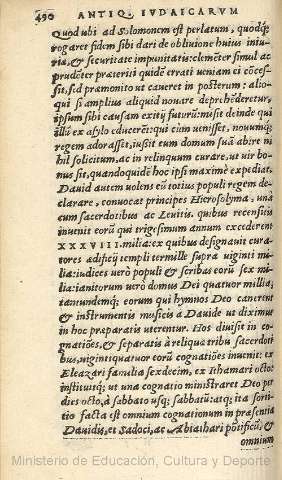 490 ANTIQ. IVDAICARVM
Quod ubi ad Solomonem est perlatum, quodq́;
rogaret fidem sibi dari de obliuione huius iniu-
riæ, & securitate impunitatis: clemēter simul ac
prudēter præteriti quidē errati ueniam ei cōces-
sit, sed præmonito ut caueret in posterum: alio-
qui si amplius aliquid nouare deprehēderetur,
ipsum sibi causam exitij futurū: misit deinde qui
illū ex asylo educerēt: qui cùm uenisset, nouumq́;
regem adorasset, iussit eum domum suā abire ni
hil solicitum, ac in relinquum curare, ut uir bo-
nus sit, quandoquidē hoc ipsi maximè expediat.
Dauid autem uolens eū totius populi regem de-
clarare, conuocat principes Hierosolyma, unà
cum sacerdotibus ac Leuitis. quibus recensitis
inuenit eorū qui trigesimum annum excederent
XXXVIII. milia: ex quibus designauit cura-
tores ædificij templi termille supra uiginti mi-
lia: iudices uerò populi & scribas eorū sex mi-
lia: ianitorum uerò domus Dei quatuor millia,
tantundemq́; eorum qui hymnos Deo canerent
& instrumentis musicis à Dauide ut diximus
in hoc præparatis uterentur. Hos diuisit in co-
gnatiōes, & separatis à reliqua tribu sacerdoti
bus, uigintiquatuor eorū cognatiōes inuenit: ex
Eleazari familia sexdecim, ex Ithamari octo:
instituitq́; ut una cognatio ministraret Deo per
dies octo, à sabbato usq; sabbatū: atq; ita sorti-
tio facta est omnium cognationum in præsentia
Dauidis, et Sadoci, ac Abiathari pōtificū, &
omnium
Ministerio de Educación, Cultura y Deporte